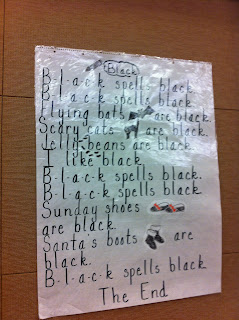 Black
B-l-a-c-k spells black.
B-l-a-c-k spells black
Flying bats are black.
Scary cats are black.
Jelly beans are black.
I like black.
B-l-a-c-k spells black.
B-l-a-c-k spells black
Sunday shoes
are black.
Santa's boots are
black.
B-l-a-c-k spells black
The End